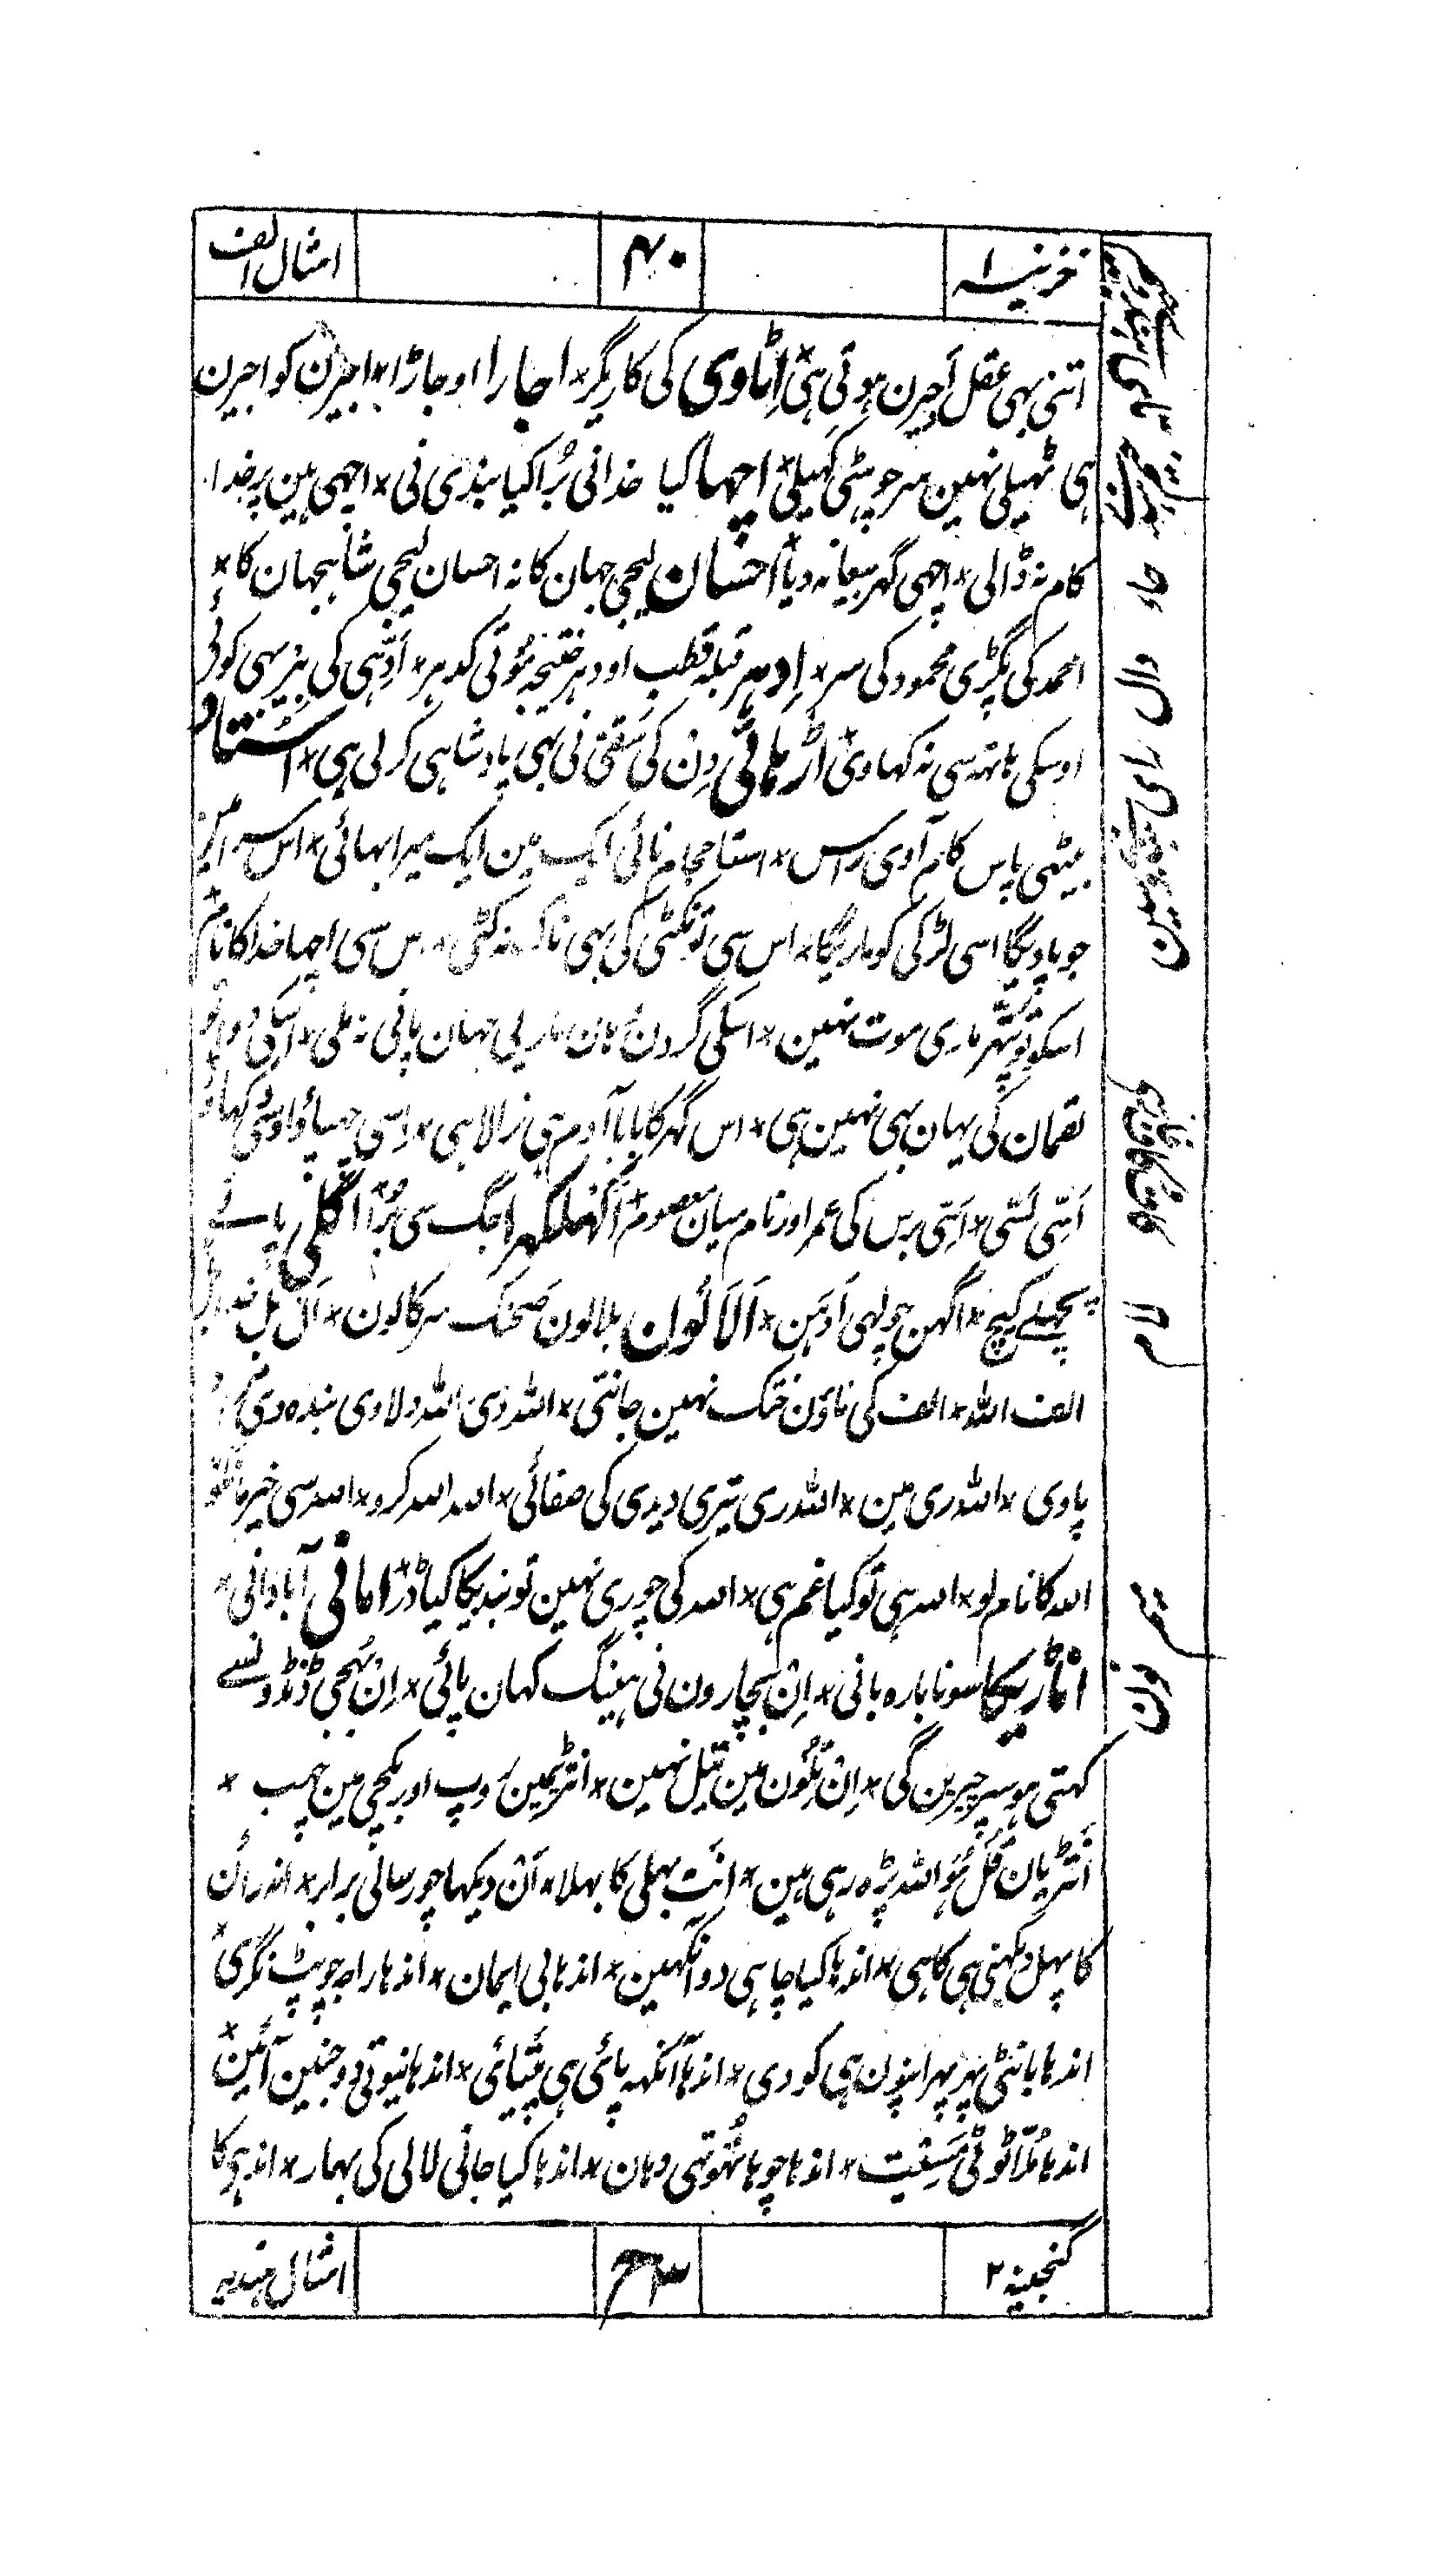 خزینہ ۱
۴۰
امثال الف
اتنی بہی عقل اَجیرن ہوتی ہی * اِٹاوی کی کاریگر * اجارا اوجاڑا * اجیرن کو اجیرن
ہی ٹہیلی نہین سر چوہٹی کہیلی * اچہا کیا خدانی بُرا کیا بندی نی * اچہی ہین پر خدا
کام نہ ڈالی * اچہی گہر بیعانہ دیا * احسان لیجی جہان کا نہ احسان لیجی شاہجہان کا *
احمد کی پگڑی محمود کی سر * اِدہر قبلہ قطب اودہر خدیجہ مُوتی کدہر * اَوِہی کی ہنڑ سہی کوئی
اوسکی ہاتہہ سی نہ کہاوی * اڑہائی دِن کی سَقی نی بہی پادشاہی کر لی ہی * استاد
بیٹہی پاس کام آوی راس * استا حجام نائی ایک مین ایک میرا بہائی * اس
جو پاویگا اسی لڑکی کو ماریگا * اس سی تو نکٹی کی بہی ناک نہ کٹی * اس سی اچہا خدا کا نام *
اسکو تو پتّہر ماری موت نہین * اسکی گردن وُہان ماریی جہان پانی نہ ملی * اسکی دوا تو
لقمان کی یہان بہی نہین ہی * اس گہر کا بابا آدم ہی نرالا ہی * اِسی چہپاؤ اوسی دکہاؤ
اَسّی لَسّی * اَسّی برس کی عمر اور نام میان معصوم * اَکہلکہرا جگ سی بُرا * اگلی پانے
پچہلے کیچ * اگہن چولہی اَدہن * اَلاَئون بلالون صحنک سرکالون * اَل بل خدا
الف اللہ * الف کی ناؤن خٹک نہین جانتی * اللہ دی اللہ دلاوی بندہ دی
پاوی * اللہ ری مین * اللہ ری تیری دیدی کی صفائی * اللہ اللہ کرو * اللہ سی خیر مانگو
اللہ کا نام لو * اللہ ہی تو کیا غم ہی * اللہ کی چوری نہین تو بندیکا کیا ڈر * امانی آبادانی *
اناڑیکا سونا بارہ بانی * اِن بیچارون نی ہینگ کہان پائی * اِن
کہتی ہو سیر چیرین گی * اِن تِلُون مین تیل نہین * انتڑیمین رُوپ اور بکچی مین چہب *
اَنتڑیان قُل ہُوَ اللہ پڑہ رہی ہین * انت بہلی کا بہلا * اَن دیکہا چور سالی برابر * اندرائن
کا پہل دیکہنی ہی کا ہی * اندہا کیا چاہی دو آنکہین * اندہا بی ایمان * اندہا راجہ چوپٹ نگری *
اندہا بانٹی پہر پہر اپنون ہی کو دی * اندہا آنکہہ پائی ہی پَتِیائی * اندہا نیوتی دو جنین آئین *
اندہا مُلّا ٹوٹی مَسِیت * اندہا چوہا تہوتہی دہان * اندہا کیا جانی لالی کی بہار * اندہی کا
گنجینہ ۲
امثال ہندیہ